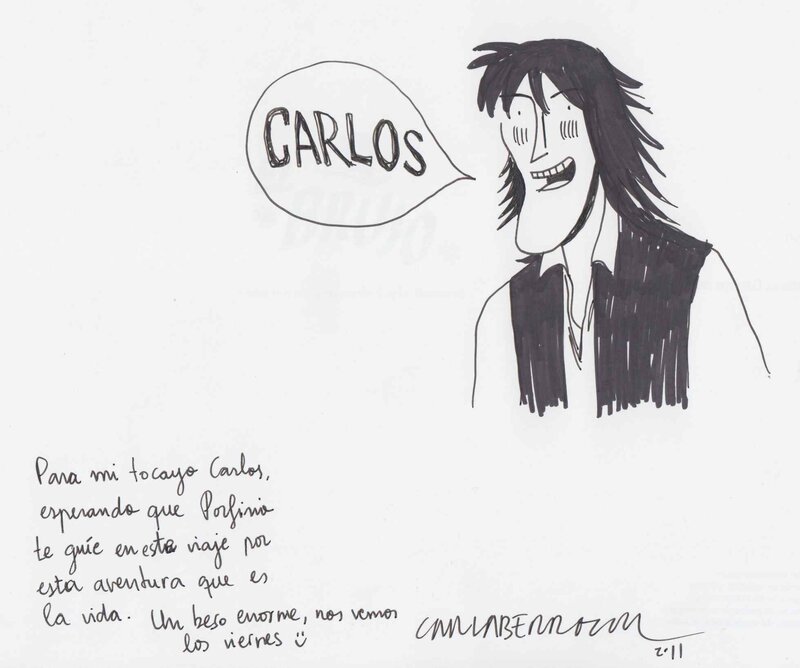 CARLOS
Para mi tocayo Carlos,
esperando que Porfirio
te guíe en esta viaje por
esta aventura que es
la vida. Un beso enorme, nos vemos
los viernes
CARLABERROCAL
2011